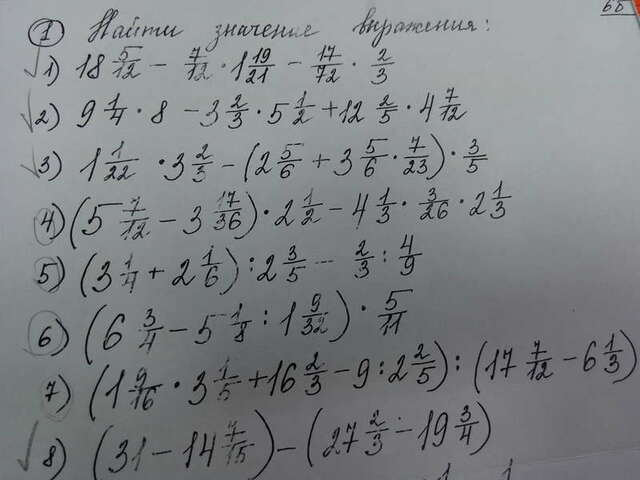 ① Найти значение выражения:
1) 18 5/12 − 7/12 · 1 19/21 − 17/72 · 2/3
2) 9 1/4 · 8 − 3 2/3 · 5 1/2 + 12 2/5 · 4 7/12
3) 1 1/22 · 3 2/3 − (2 5/6 + 3 5/6 · 7/23) · 3/5
4) (5 7/12 − 3 17/36) · 2 1/2 − 4 1/3 · 3/26 · 2 1/3
5) (3 1/4 + 2 1/6) : 2 3/5 − 2/3 : 4/9
6) (6 3/4 − 5 1/8 : 1 9/32) · 5/11
7) (1 9/16 · 3 1/5 + 16 2/3 − 9 : 2 2/5) : (17 7/12 − 6 1/3)
8) (31 − 14 7/15) − (27 2/3 − 19 3/4)